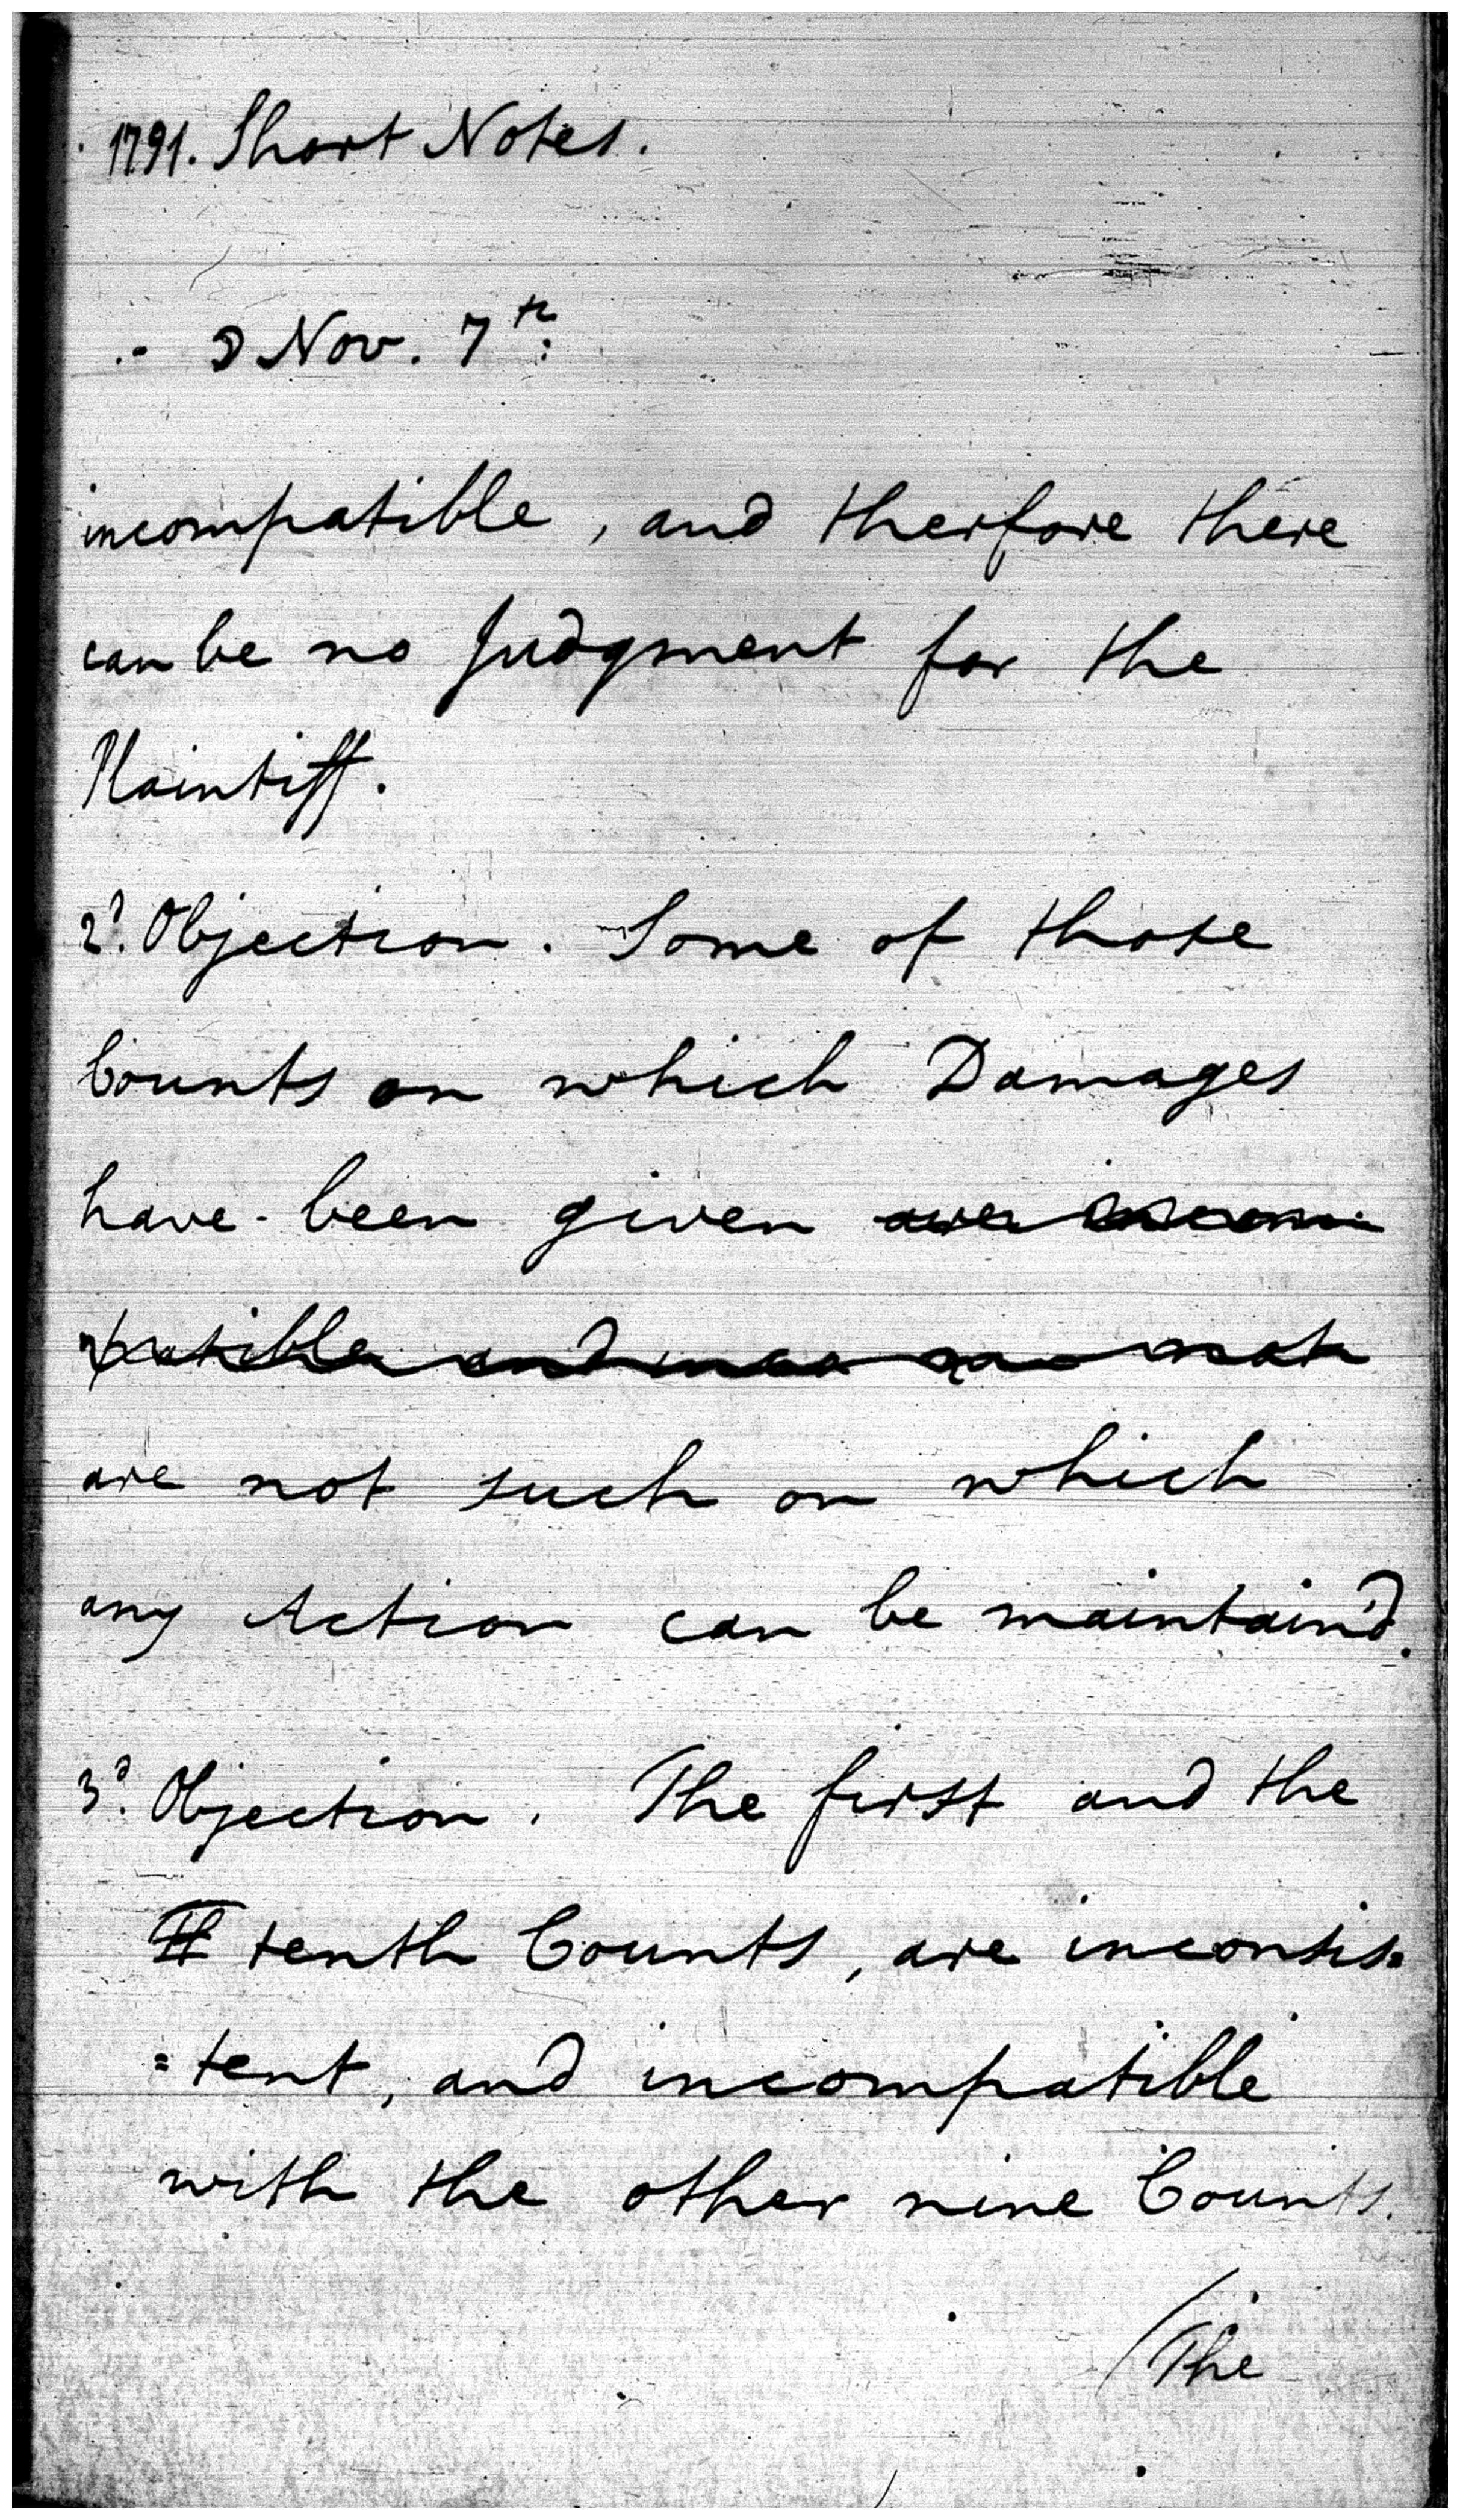 1791. Short Notes.
☽ Nov. 7th:
incompatible, and therfore there
can be no Judgment for the
Plaintiff.
2d. Objection. Some of those
Counts on which Damages
have been given are incom
patible and not
are not such on which
any Action can be maintain'd.
3d. Objection. The first and the
tenth Counts, are inconsis=
=tent, and incompatible
with the other nine Counts.
(The